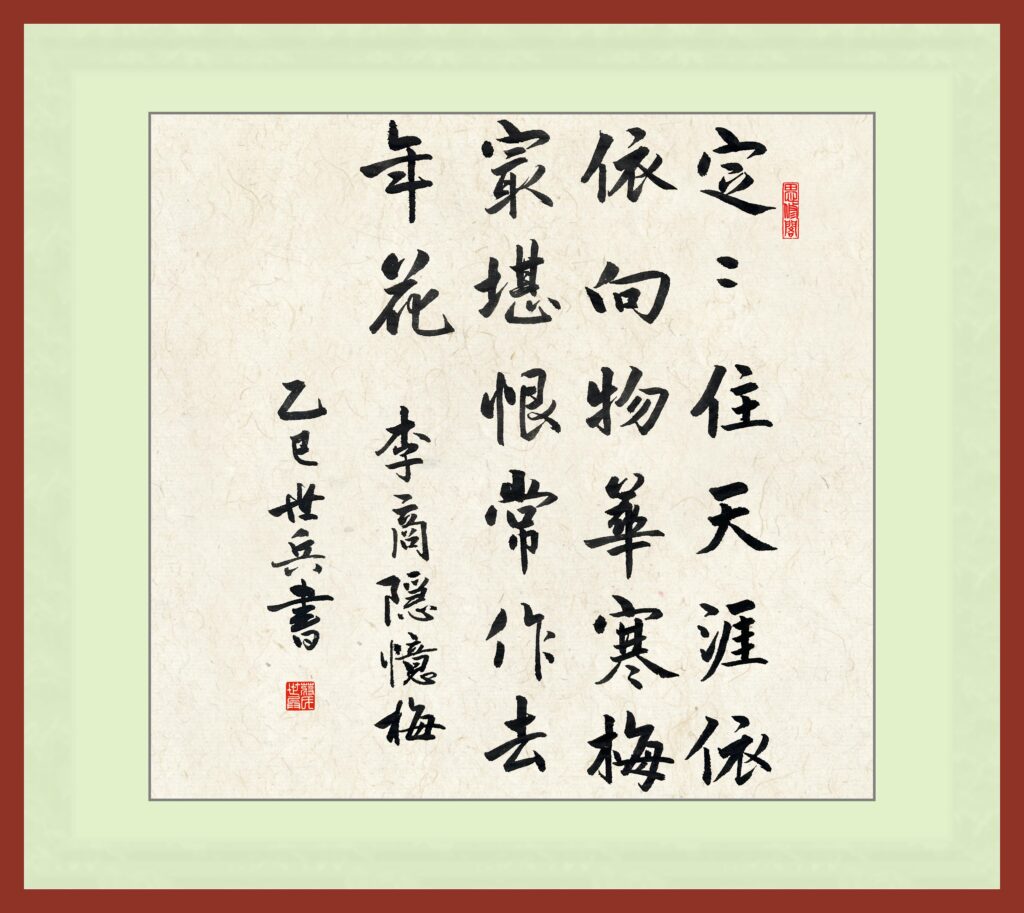 定〻住天涯依
依向物華寒梅
㝡堪恨常作去
年花
李商隱憶梅
乙巳世兵書